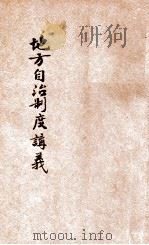 地方自治制度講義
mtoou.info